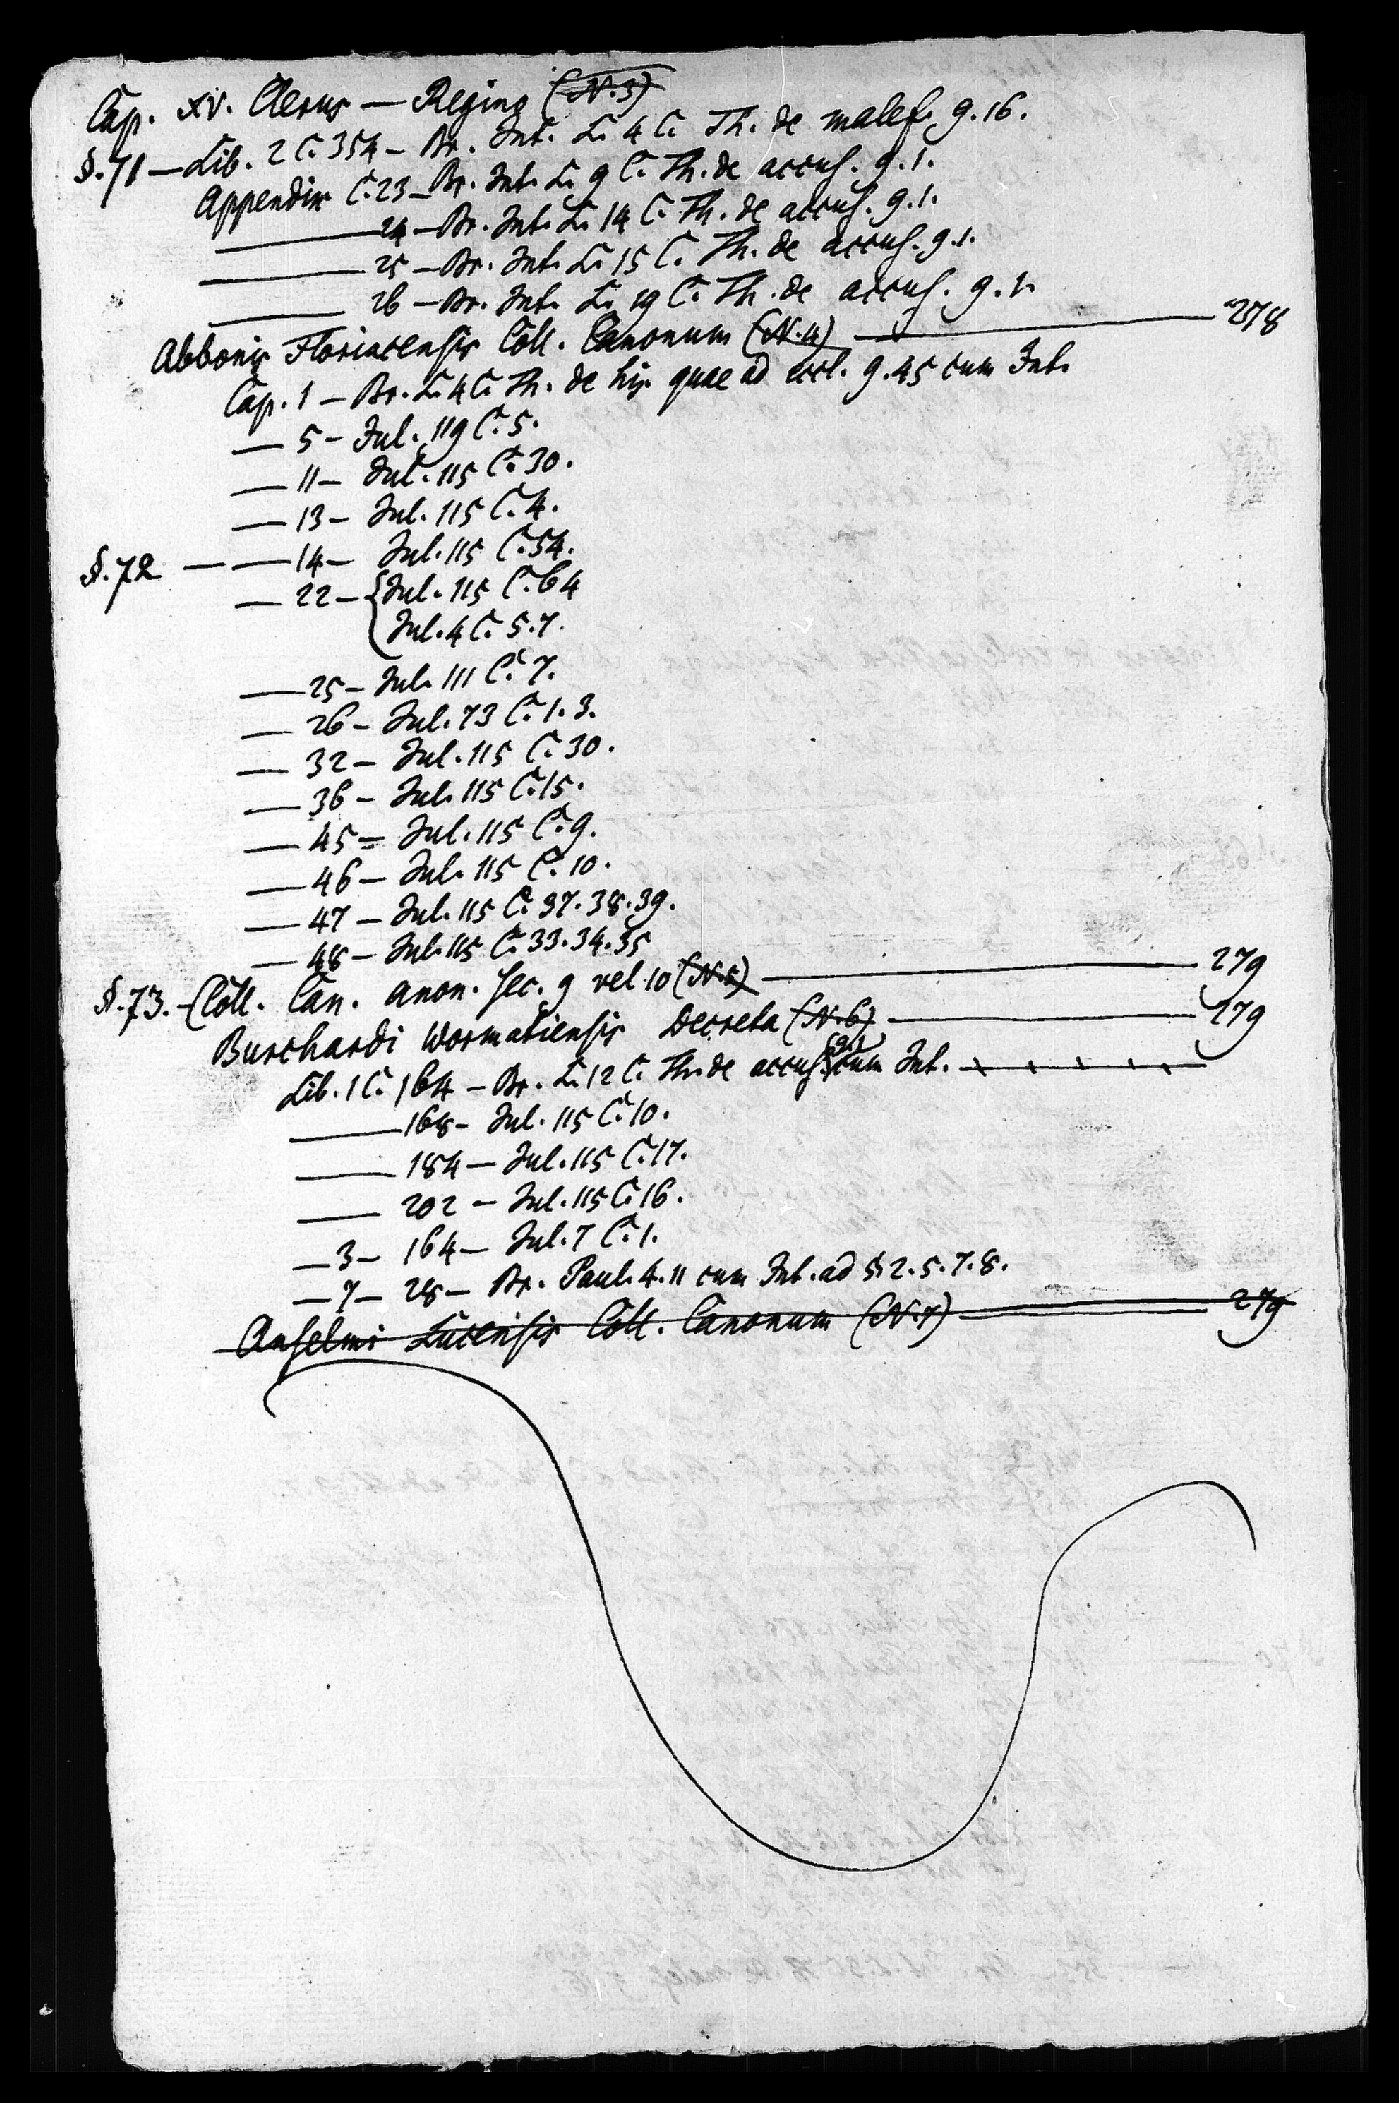 Cap. XV. Clerus — Regino (N. 3)
§. 71 — Lib. 2 C. 354 — Br. Int. L. 4 C. Th. de malef. 9. 16.
Appendix C. 23 — Br. Int. L. 9 C. Th. de accus. 9. 1.
— 24 — Br. Int. L. 14 C. Th. de accus. 9. 1.
— 25 — Br. Int. L. 15 C. Th. de accus. 9. 1.
— 26 — Br. Int. L. 19 C. Th. de accus. 9. 1.
Abbonis Floriacensis Coll. Canonum (N. 4) — 278
Cap. 1 — Br. L. 4 C. Th. de his quae ad eccl. 9. 45 cum Int.
— 5 — Jul. 119 C. 5.
— 11 — Jul. 115 C. 30.
— 13 — Jul. 115 C. 4.
§. 72 — — 14 — Jul. 115 C. 54.
— 22 — { Jul. 115 C. 64
Jul. 4 C. 5. 7.
— 25 — Jul. 111 C. 7.
— 26 — Jul. 73 C. 1. 3.
— 32 — Jul. 115 C. 30.
— 36 — Jul. 115 C. 15.
— 45 = Jul. 115 C. 9.
— 46 — Jul. 115 C. 10.
— 47 — Jul. 115 C. 37. 38. 39.
— 48 — Jul. 115 C. 33. 34. 35
§. 73. — Coll. Can. anon. sec. 9 vel. 10 (N. 5) — 279
Burchardi Wormatiensis Decreta (N. 6) — 279
Lib. 1 C. 164 — Br. L. 12 C. Th. de accus. (9. 1) cum Int. —
— 168 — Jul. 115 C. 10.
— 184 — Jul. 115 C. 17.
— 202 — Jul. 115 C. 16.
— 3 — 164 — Jul. 7 C. 1.
— 7 — 28 — Br. Paul. 4. 11 cum Int. ad §. 2. 5. 7. 8.
Anselmi Lucensis Coll. Canonum (N. 7) — 279